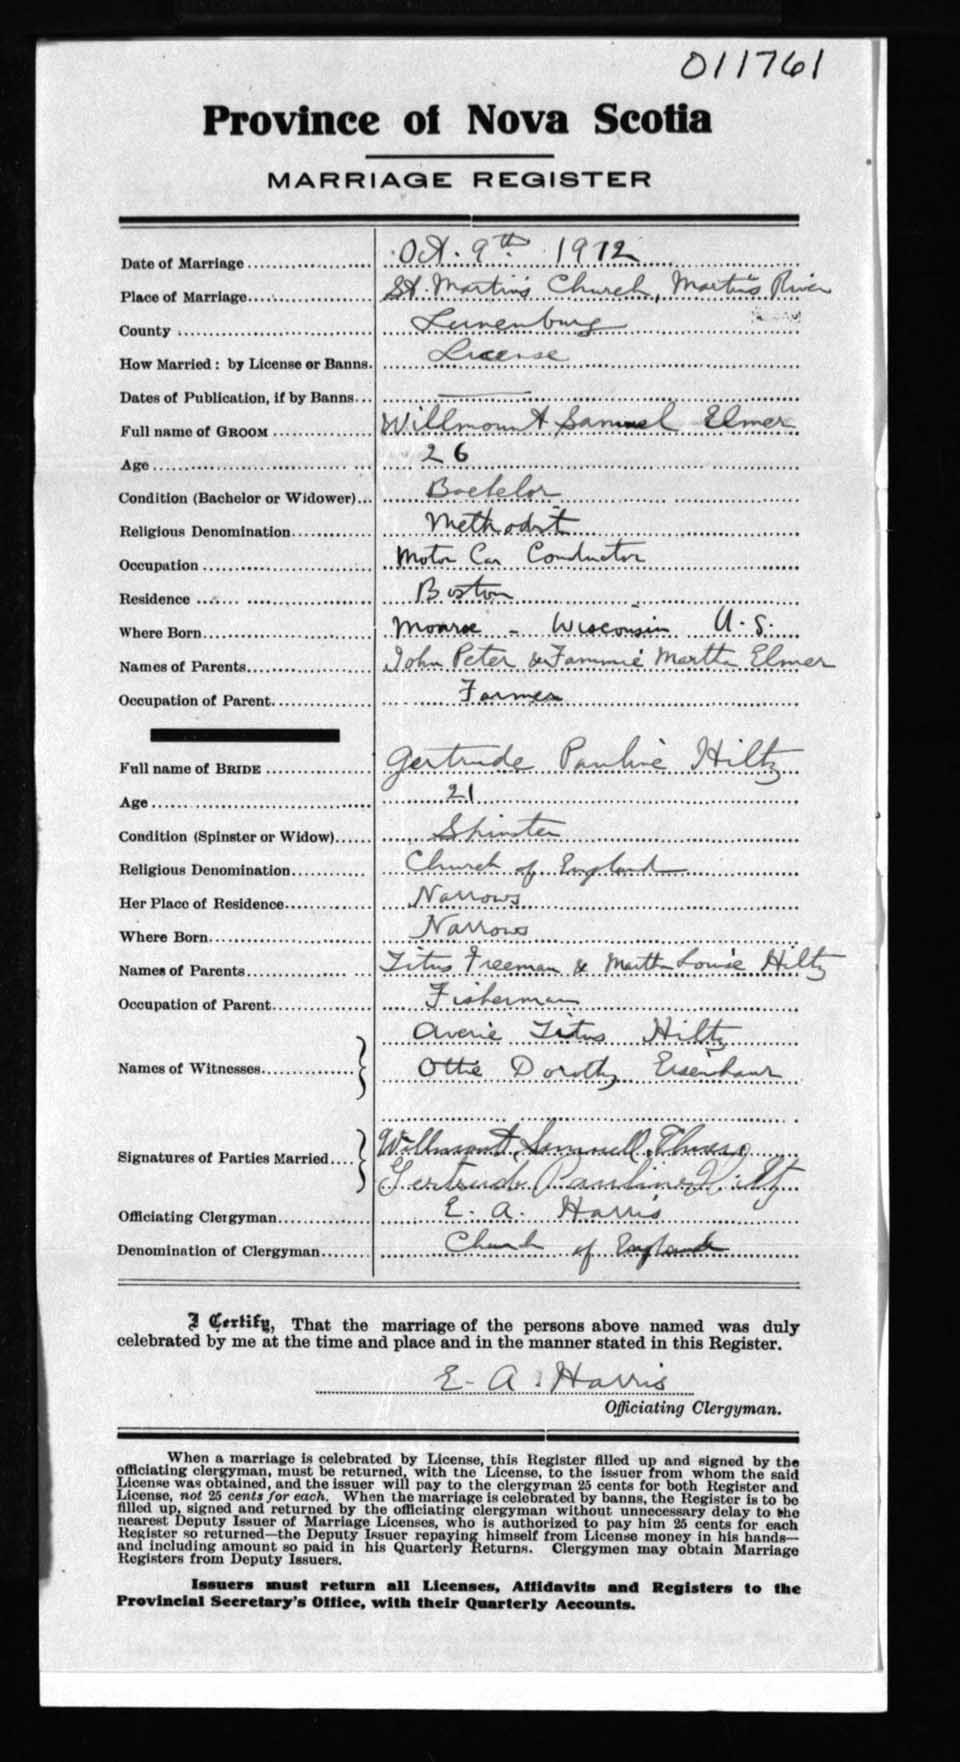 011761
Province of Nova Scotia
MARRIAGE REGISTER
Date of Marriage Oct. 9th 1912
Place of Marriage St. Martin's Church, Martin's River
County Lunenburg
How Married: by License or Banns. License
Dates of Publication, if by Banns —
Full name of GROOM Willmount Samuel Elmer
Age 26
Condition (Bachelor or Widower) Bachelor
Religious Denomination Methodist
Occupation Motor Car Conductor
Residence Boston
Where Born Monroe - Wisconsin U.S.
Names of Parents John Peter & Fannie Martha Elmer
Occupation of Parent Farmer
Full name of BRIDE Gertrude Pauline Hiltz
Age 21
Condition (Spinster or Widow) Spinster
Religious Denomination Church of England
Her Place of Residence Narrows
Where Born Narrows
Names of Parents Titus Freeman & Martha Louise Hiltz
Occupation of Parent Fisherman
Averie Titus Hiltz
Names of Witnesses Ottie Dorothy Eisenhaur
Willmount Samuel Elmer
Signatures of Parties Married
Gertrude Pauline Hiltz
Officiating Clergyman E. A. Harris
Denomination of Clergyman Church of England
I Certify, That the marriage of the persons above named was duly
celebrated by me at the time and place and in the manner stated in this Register.
E. A. Harris
Officiating Clergyman.
When a marriage is celebrated by License, this Register filled up and signed by the
officiating clergyman, must be returned, with the License, to the issuer from whom the said
License was obtained, and the issuer will pay to the clergyman 25 cents for both Register and
License, not 25 cents for each. When the marriage is celebrated by banns, the Register is to be
filled up, signed and returned by the officiating clergyman without unnecessary delay to the
nearest Deputy Issuer of Marriage Licenses, who is authorized to pay him 25 cents for each
Register so returned—the Deputy Issuer repaying himself from License money in his hands—
and including amount so paid in his Quarterly Returns. Clergymen may obtain Marriage
Registers from Deputy Issuers.
Issuers must return all Licenses, Affidavits and Registers to the
Provincial Secretary's Office, with their Quarterly Accounts.